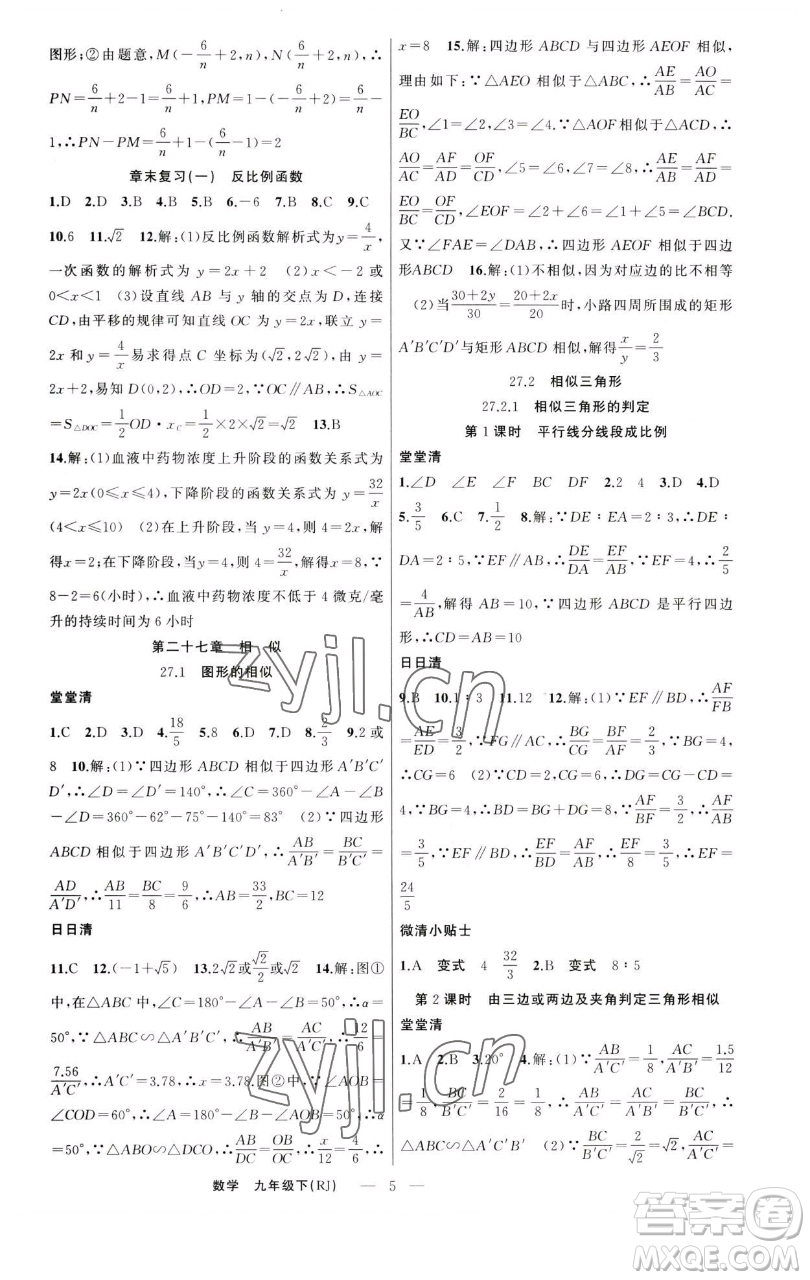 图形；②由题意，M(－6/n＋2，n)，N(6/n＋2，n)，∴
PN＝6/n＋2－1＝6/n＋1，PM＝1－(－6/n＋2)＝6/n－
1，∴PN－PM＝6/n＋1－(6/n－1)＝2
章末复习(一)　反比例函数
1.D　2.D　3.B　4.B　5.B　6.－6　7.B　8.C　9.C
10.6　11.√2　12.解：(1)反比例函数解析式为y＝4/x，
一次函数的解析式为y＝2x＋2　(2)x＜－2或
0＜x＜1　(3)设直线AB与y轴的交点为D，连接
CD，由平移的规律可知直线OC为y＝2x，联立y＝
2x和y＝4/x易求得点C坐标为(√2，2√2)，由y＝
2x＋2，易知D(0，2)，∴OD＝2，∵OC∥AB，∴S△AOC
＝S△DOC＝1/2OD·x_C＝1/2×2×√2＝√2　13.B
14.解：(1)血液中药物浓度上升阶段的函数关系式为
y＝2x(0≤x≤4)，下降阶段的函数关系式为y＝32/x
(4＜x≤10)　(2)在上升阶段，当y＝4，则4＝2x，解
得x＝2；在下降阶段，当y＝4，则4＝32/x，解得x＝8，∵
8－2＝6(小时)，∴血液中药物浓度不低于4微克/毫
升的持续时间为6小时
第二十七章　相　似
27.1　图形的相似
堂堂清
1.C　2.D　3.D　4.18/5　5.8　6.D　7.D　8.2/3　9.2或
8　10.解：(1)∵四边形ABCD相似于四边形A′B′C′
D′，∴∠D＝∠D′＝140°，∴∠C＝360°－∠A－∠B
－∠D＝360°－62°－75°－140°＝83°　(2)∵四边形
ABCD相似于四边形A′B′C′D′，∴AB/A′B′＝BC/B′C′＝
AD/A′D′，∴AB/11＝BC/8＝9/6，∴AB＝33/2，BC＝12
日日清
11.C　12.(－1＋√5)　13.2√2或√2/2或√2　14.解：图①
中，在△ABC中，∠C＝180°－∠A－∠B＝50°，∴α＝
50°，∵△ABC∽△A′B′C′，∴AB/A′B′＝AC/A′C′，∴12/6＝
7.56/A′C′，∴A′C′＝3.78，∴x＝3.78.图②中，∵∠AOB＝
∠COD＝60°，∴∠A＝180°－∠B－∠AOB＝50°，∴α
＝50°，∵△ABO∽△DCO，∴AB/DC＝OB/OC，∴x/12＝4/6，∴
x＝8　15.解：四边形ABCD与四边形AEOF相似，
理由如下：∵△AEO相似于△ABC，∴AE/AB＝AO/AC＝
EO/BC，∠1＝∠2，∠3＝∠4.∵△AOF相似于△ACD，∴
AO/AC＝AF/AD＝OF/CD，∠5＝∠6，∠7＝∠8，∴AE/AB＝AF/AD＝
EO/BC＝OF/CD，∠EOF＝∠2＋∠6＝∠1＋∠5＝∠BCD.
又∵∠FAE＝∠DAB，∴四边形AEOF相似于四边
形ABCD　16.解：(1)不相似，因为对应边的比不相等
(2)当30＋2y/30＝20＋2x/20时，小路四周所围成的矩形
A′B′C′D′与矩形ABCD相似，解得x/y＝2/3
27.2　相似三角形
27.2.1　相似三角形的判定
第1课时　平行线分线段成比例
堂堂清
1.∠D　∠E　∠F　BC　DF　2.2　4　3.D　4.D
5.3/5　6.C　7.1/2　8.解：∵DE∶EA＝2∶3，∴DE∶
DA＝2∶5，∵EF∥AB，∴DE/DA＝EF/AB，∵EF＝4，∴2/5
＝4/AB，解得AB＝10，∵四边形ABCD是平行四边
形，∴CD＝AB＝10
日日清
9.B　10.1∶3　11.12　12.解：(1)∵EF∥BD，∴AF/FB
＝AE/ED＝3/2，∵FG∥AC，∴BG/CG＝BF/AF＝2/3，∵BG＝4，
∴CG＝6　(2)∵CD＝2，CG＝6，∴DG＝CG－CD＝
4，∵BG＝4，∴BD＝BG＋DG＝8，∵AF/BF＝3/2，∴AF/AB
＝3/5，∵EF∥BD，∴EF/BD＝AF/AB，∴EF/8＝3/5，∴EF＝
24/5
微清小贴士
1.A　变式　4　32/3　2.B　变式　8∶5
第2课时　由三边或两边及夹角判定三角形相似
堂堂清
1.A　2.B　3.20°　4.解：(1)∵AB/A′B′＝1/8，AC/A′C′＝1.5/12
＝1/8，BC/B′C′＝2/16＝1/8，∴AB/A′B′＝AC/A′C′＝BC/B′C′，∴
△ABC∽△A′B′C′　(2)∵BC/B′C′＝2/√2＝√2，AC/A′C′＝
数学　九年级下(RJ)　— 5 —
zyjl.cn
zyjl.cn
答案圈
MXQE.COM